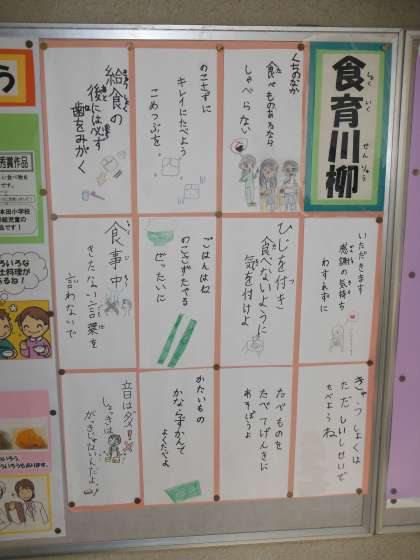 食育川柳
しょく いく せんりゅう
くちのなか
食べものあるなら
しゃべらない
のこさずに
キレイにたべよう
こめつぶを
給食の
後には必ず
歯をみがく
いただきます
感謝の気持ち
わすれずに
ひじを付き
食べないように
気を付けよ
ごはんはね
のこさずたべる
ぜったいに
食事中
きたない言葉を
言わないで
きゅうしょくは
ただしいしせいで
たべようね
たべものを
たべてげんきに
あそぼうよ
かたいもの
かならずかんで
よくたべよ
音はダメ!
しょっきは
がっきじゃないんだよ。
う
秀賞作品
本田小学校